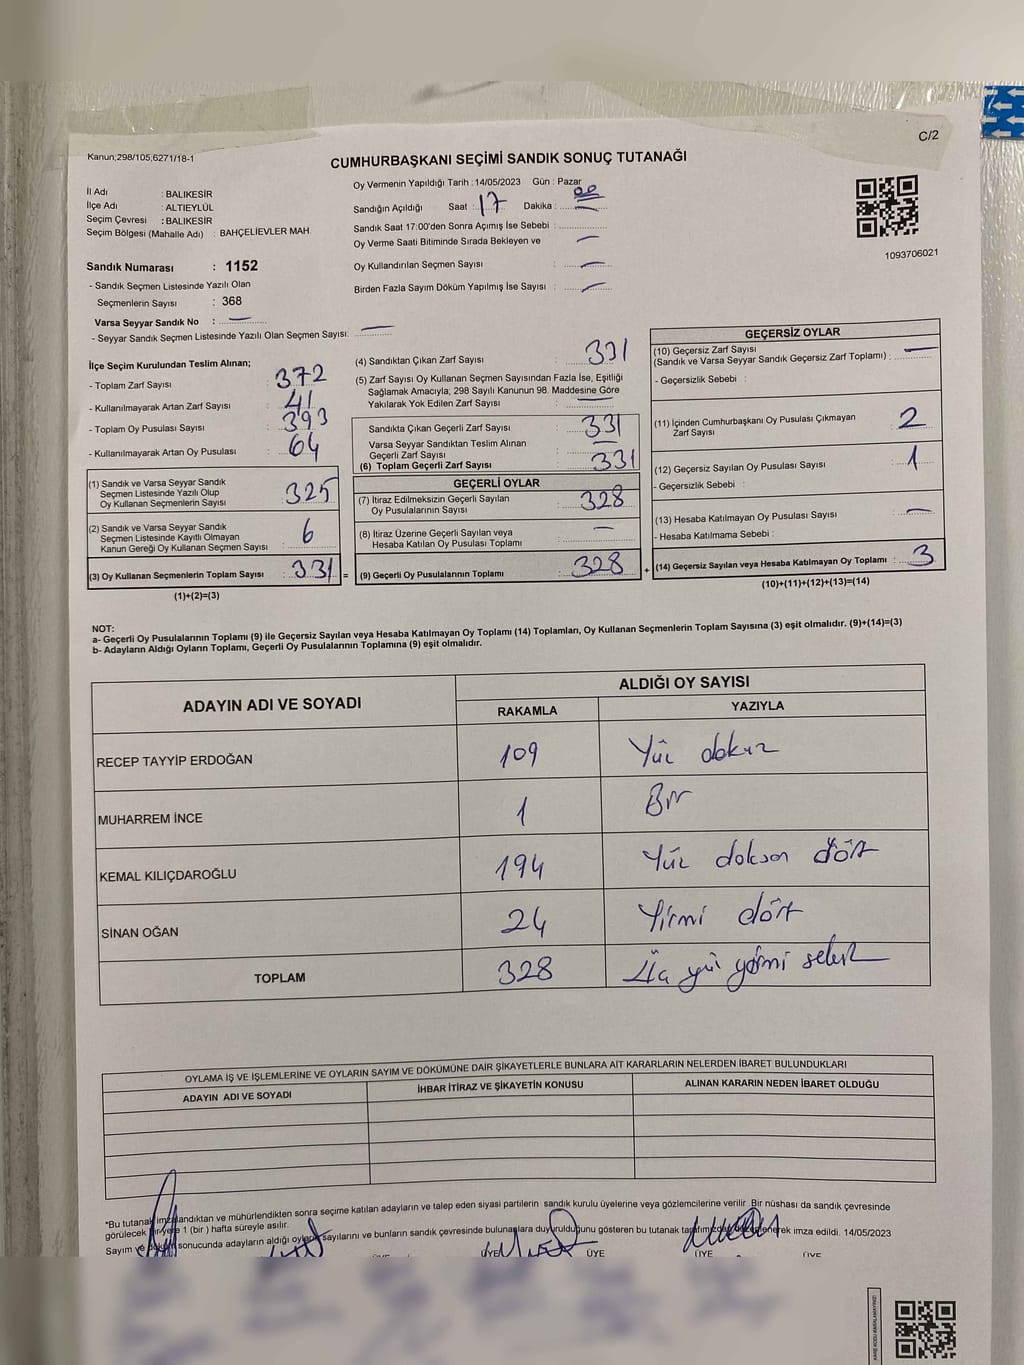 C/2
Kanun;298/105,6271/18-1
CUMHURBAŞKANI SEÇİMİ SANDIK SONUÇ TUTANAĞI
İl Adı : BALIKESİR
İlçe Adı : ALTIEYLÜL
Seçim Çevresi : BALIKESİR
Seçim Bölgesi (Mahalle Adı) : BAHÇELİEVLER MAH.
Sandık Numarası : 1152
- Sandık Seçmen Listesinde Yazılı Olan
Seçmenlerin Sayısı : 368
Varsa Seyyar Sandık No : —
- Seyyar Sandık Seçmen Listesinde Yazılı Olan Seçmen Sayısı: —
Oy Vermenin Yapıldığı Tarih : 14/05/2023 Gün : Pazar
Sandığın Açıldığı Saat : 17 Dakika : 00
Sandık Saat 17:00'den Sonra Açımış İse Sebebi :
Oy Verme Saati Bitiminde Sırada Bekleyen ve —
Oy Kullandırılan Seçmen Sayısı : —
Birden Fazla Sayım Döküm Yapılmış İse Sayısı : —
1093706021
İlçe Seçim Kurulundan Teslim Alınan;
- Toplam Zarf Sayısı : 372
- Kullanılmayarak Artan Zarf Sayısı : 41
- Toplam Oy Pusulası Sayısı : 393
- Kullanılmayarak Artan Oy Pusulası : 64
(1) Sandık ve Varsa Seyyar Sandık
Seçmen Listesinde Yazılı Olup
Oy Kullanan Seçmenlerin Sayısı : 325
(2) Sandık ve Varsa Seyyar Sandık
Seçmen Listesinde Kayıtlı Olmayan
Kanun Gereği Oy Kullanan Seçmen Sayısı : 6
(3) Oy Kullanan Seçmenlerin Toplam Sayısı : 331 =
(1)+(2)=(3)
(4) Sandıktan Çıkan Zarf Sayısı : 331
(5) Zarf Sayısı Oy Kullanan Seçmen Sayısından Fazla İse, Eşitliği
Sağlamak Amacıyla, 298 Sayılı Kanunun 98. Maddesine Göre
Yakılarak Yok Edilen Zarf Sayısı : —
Sandıkta Çıkan Geçerli Zarf Sayısı : 331
Varsa Seyyar Sandıktan Teslim Alınan
Geçerli Zarf Sayısı : —
(6) Toplam Geçerli Zarf Sayısı : 331
GEÇERLİ OYLAR
(7) İtiraz Edilmeksizin Geçerli Sayılan
Oy Pusulalarının Sayısı : 328
(8) İtiraz Üzerine Geçerli Sayılan veya
Hesaba Katılan Oy Pusulası Toplamı : —
(9) Geçerli Oy Pusulalarının Toplamı : 328 +
GEÇERSİZ OYLAR
(10) Geçersiz Zarf Sayısı
(Sandık ve Varsa Seyyar Sandık Geçersiz Zarf Toplamı) : —
- Geçersizlik Sebebi :
(11) İçinden Cumhurbaşkanı Oy Pusulası Çıkmayan
Zarf Sayısı : 2
(12) Geçersiz Sayılan Oy Pusulası Sayısı : 1
- Geçersizlik Sebebi :
(13) Hesaba Katılmayan Oy Pusulası Sayısı : —
- Hesaba Katılmama Sebebi :
(14) Geçersiz Sayılan veya Hesaba Katılmayan Oy Toplamı : 3
(10)+(11)+(12)+(13)=(14)
NOT:
a- Geçerli Oy Pusulalarının Toplamı (9) ile Geçersiz Sayılan veya Hesaba Katılmayan Oy Toplamı (14) Toplamları, Oy Kullanan Seçmenlerin Toplam Sayısına (3) eşit olmalıdır. (9)+(14)=(3)
b- Adayların Aldığı Oyların Toplamı, Geçerli Oy Pusulalarının Toplamına (9) eşit olmalıdır.
ADAYIN ADI VE SOYADI ALDIĞI OY SAYISI
RAKAMLA YAZIYLA
RECEP TAYYİP ERDOĞAN 109 Yüz dokuz
MUHARREM İNCE 1 Bir
KEMAL KILIÇDAROĞLU 194 Yüz doksan dört
SİNAN OĞAN 24 Yirmi dört
TOPLAM 328 Üç yüz yirmi sekiz
OYLAMA İŞ VE İŞLEMLERİNE VE OYLARIN SAYIM VE DÖKÜMÜNE DAİR ŞİKAYETLERLE BUNLARA AİT KARARLARIN NELERDEN İBARET BULUNDUKLARI
ADAYIN ADI VE SOYADI İHBAR İTİRAZ VE ŞİKAYETİN KONUSU ALINAN KARARIN NEDEN İBARET OLDUĞU
*Bu tutanak imzalandıktan ve mühürlendikten sonra seçime katılan adayların ve talep eden siyasi partilerin sandık kurulu üyelerine veya gözlemcilerine verilir. Bir nüshası da sandık çevresinde
görülecek bir yere 1 (bir) hafta süreyle asılır.
Sayım ve döküm sonucunda adayların aldığı oyların sayılarını ve bunların sandık çevresinde bulunanlara duyurulduğunu gösteren bu tutanak imza edildi. 14/05/2023
ÜYE ÜYE ÜYE ÜYE